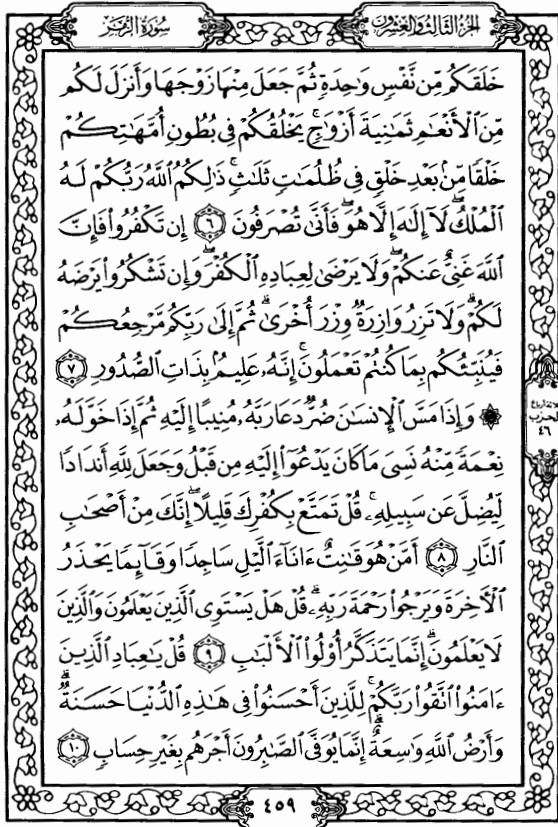 سُورَةُ الزُّمَرِ
الجُزْءُ الثَّالِثُ وَالعِشْرُونَ
خَلَقَكُم مِّن نَّفْسٍ وَٰحِدَةٍ ثُمَّ جَعَلَ مِنْهَا زَوْجَهَا وَأَنزَلَ لَكُم
مِّنَ ٱلْأَنْعَٰمِ ثَمَٰنِيَةَ أَزْوَٰجٍ ۚ يَخْلُقُكُمْ فِى بُطُونِ أُمَّهَٰتِكُمْ
خَلْقًا مِّنۢ بَعْدِ خَلْقٍ فِى ظُلُمَٰتٍ ثَلَٰثٍ ۚ ذَٰلِكُمُ ٱللَّهُ رَبُّكُمْ لَهُ
ٱلْمُلْكُ ۖ لَآ إِلَٰهَ إِلَّا هُوَ ۖ فَأَنَّىٰ تُصْرَفُونَ ٦ إِن تَكْفُرُوا۟ فَإِنَّ
ٱللَّهَ غَنِىٌّ عَنكُمْ ۖ وَلَا يَرْضَىٰ لِعِبَادِهِ ٱلْكُفْرَ ۖ وَإِن تَشْكُرُوا۟ يَرْضَهُ
لَكُمْ ۗ وَلَا تَزِرُ وَازِرَةٌ وِزْرَ أُخْرَىٰ ۗ ثُمَّ إِلَىٰ رَبِّكُم مَّرْجِعُكُمْ
فَيُنَبِّئُكُم بِمَا كُنتُمْ تَعْمَلُونَ ۚ إِنَّهُۥ عَلِيمٌۢ بِذَاتِ ٱلصُّدُورِ ٧
۞ وَإِذَا مَسَّ ٱلْإِنسَٰنَ ضُرٌّ دَعَا رَبَّهُۥ مُنِيبًا إِلَيْهِ ثُمَّ إِذَا خَوَّلَهُۥ
نِعْمَةً مِّنْهُ نَسِىَ مَا كَانَ يَدْعُوٓا۟ إِلَيْهِ مِن قَبْلُ وَجَعَلَ لِلَّهِ أَندَادًا
لِّيُضِلَّ عَن سَبِيلِهِۦ ۚ قُلْ تَمَتَّعْ بِكُفْرِكَ قَلِيلًا ۖ إِنَّكَ مِنْ أَصْحَٰبِ
ٱلنَّارِ ٨ أَمَّنْ هُوَ قَٰنِتٌ ءَانَآءَ ٱلَّيْلِ سَاجِدًا وَقَآئِمًا يَحْذَرُ
ٱلْءَاخِرَةَ وَيَرْجُوا۟ رَحْمَةَ رَبِّهِۦ ۗ قُلْ هَلْ يَسْتَوِى ٱلَّذِينَ يَعْلَمُونَ وَٱلَّذِينَ
لَا يَعْلَمُونَ ۗ إِنَّمَا يَتَذَكَّرُ أُو۟لُوا۟ ٱلْأَلْبَٰبِ ٩ قُلْ يَٰعِبَادِ ٱلَّذِينَ
ءَامَنُوا۟ ٱتَّقُوا۟ رَبَّكُمْ ۚ لِلَّذِينَ أَحْسَنُوا۟ فِى هَٰذِهِ ٱلدُّنْيَا حَسَنَةٌ ۗ
وَأَرْضُ ٱللَّهِ وَٰسِعَةٌ ۗ إِنَّمَا يُوَفَّى ٱلصَّٰبِرُونَ أَجْرَهُم بِغَيْرِ حِسَابٍ ١٠
الحزب
٤٦
٤٥٩